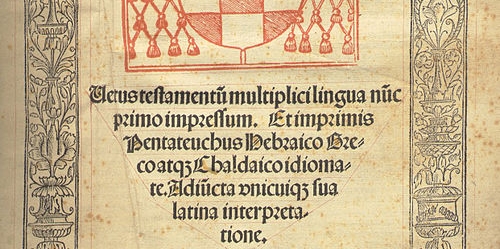 Uetus testamentū multiplici lingua nūc
primo impressum. Et imprimis
Pentateuchus Hebraico Gre-
co atqꝫ Chaldaico idioma-
te. Adiūcta vnicuiqꝫ sua
latina interpreta-
tione.